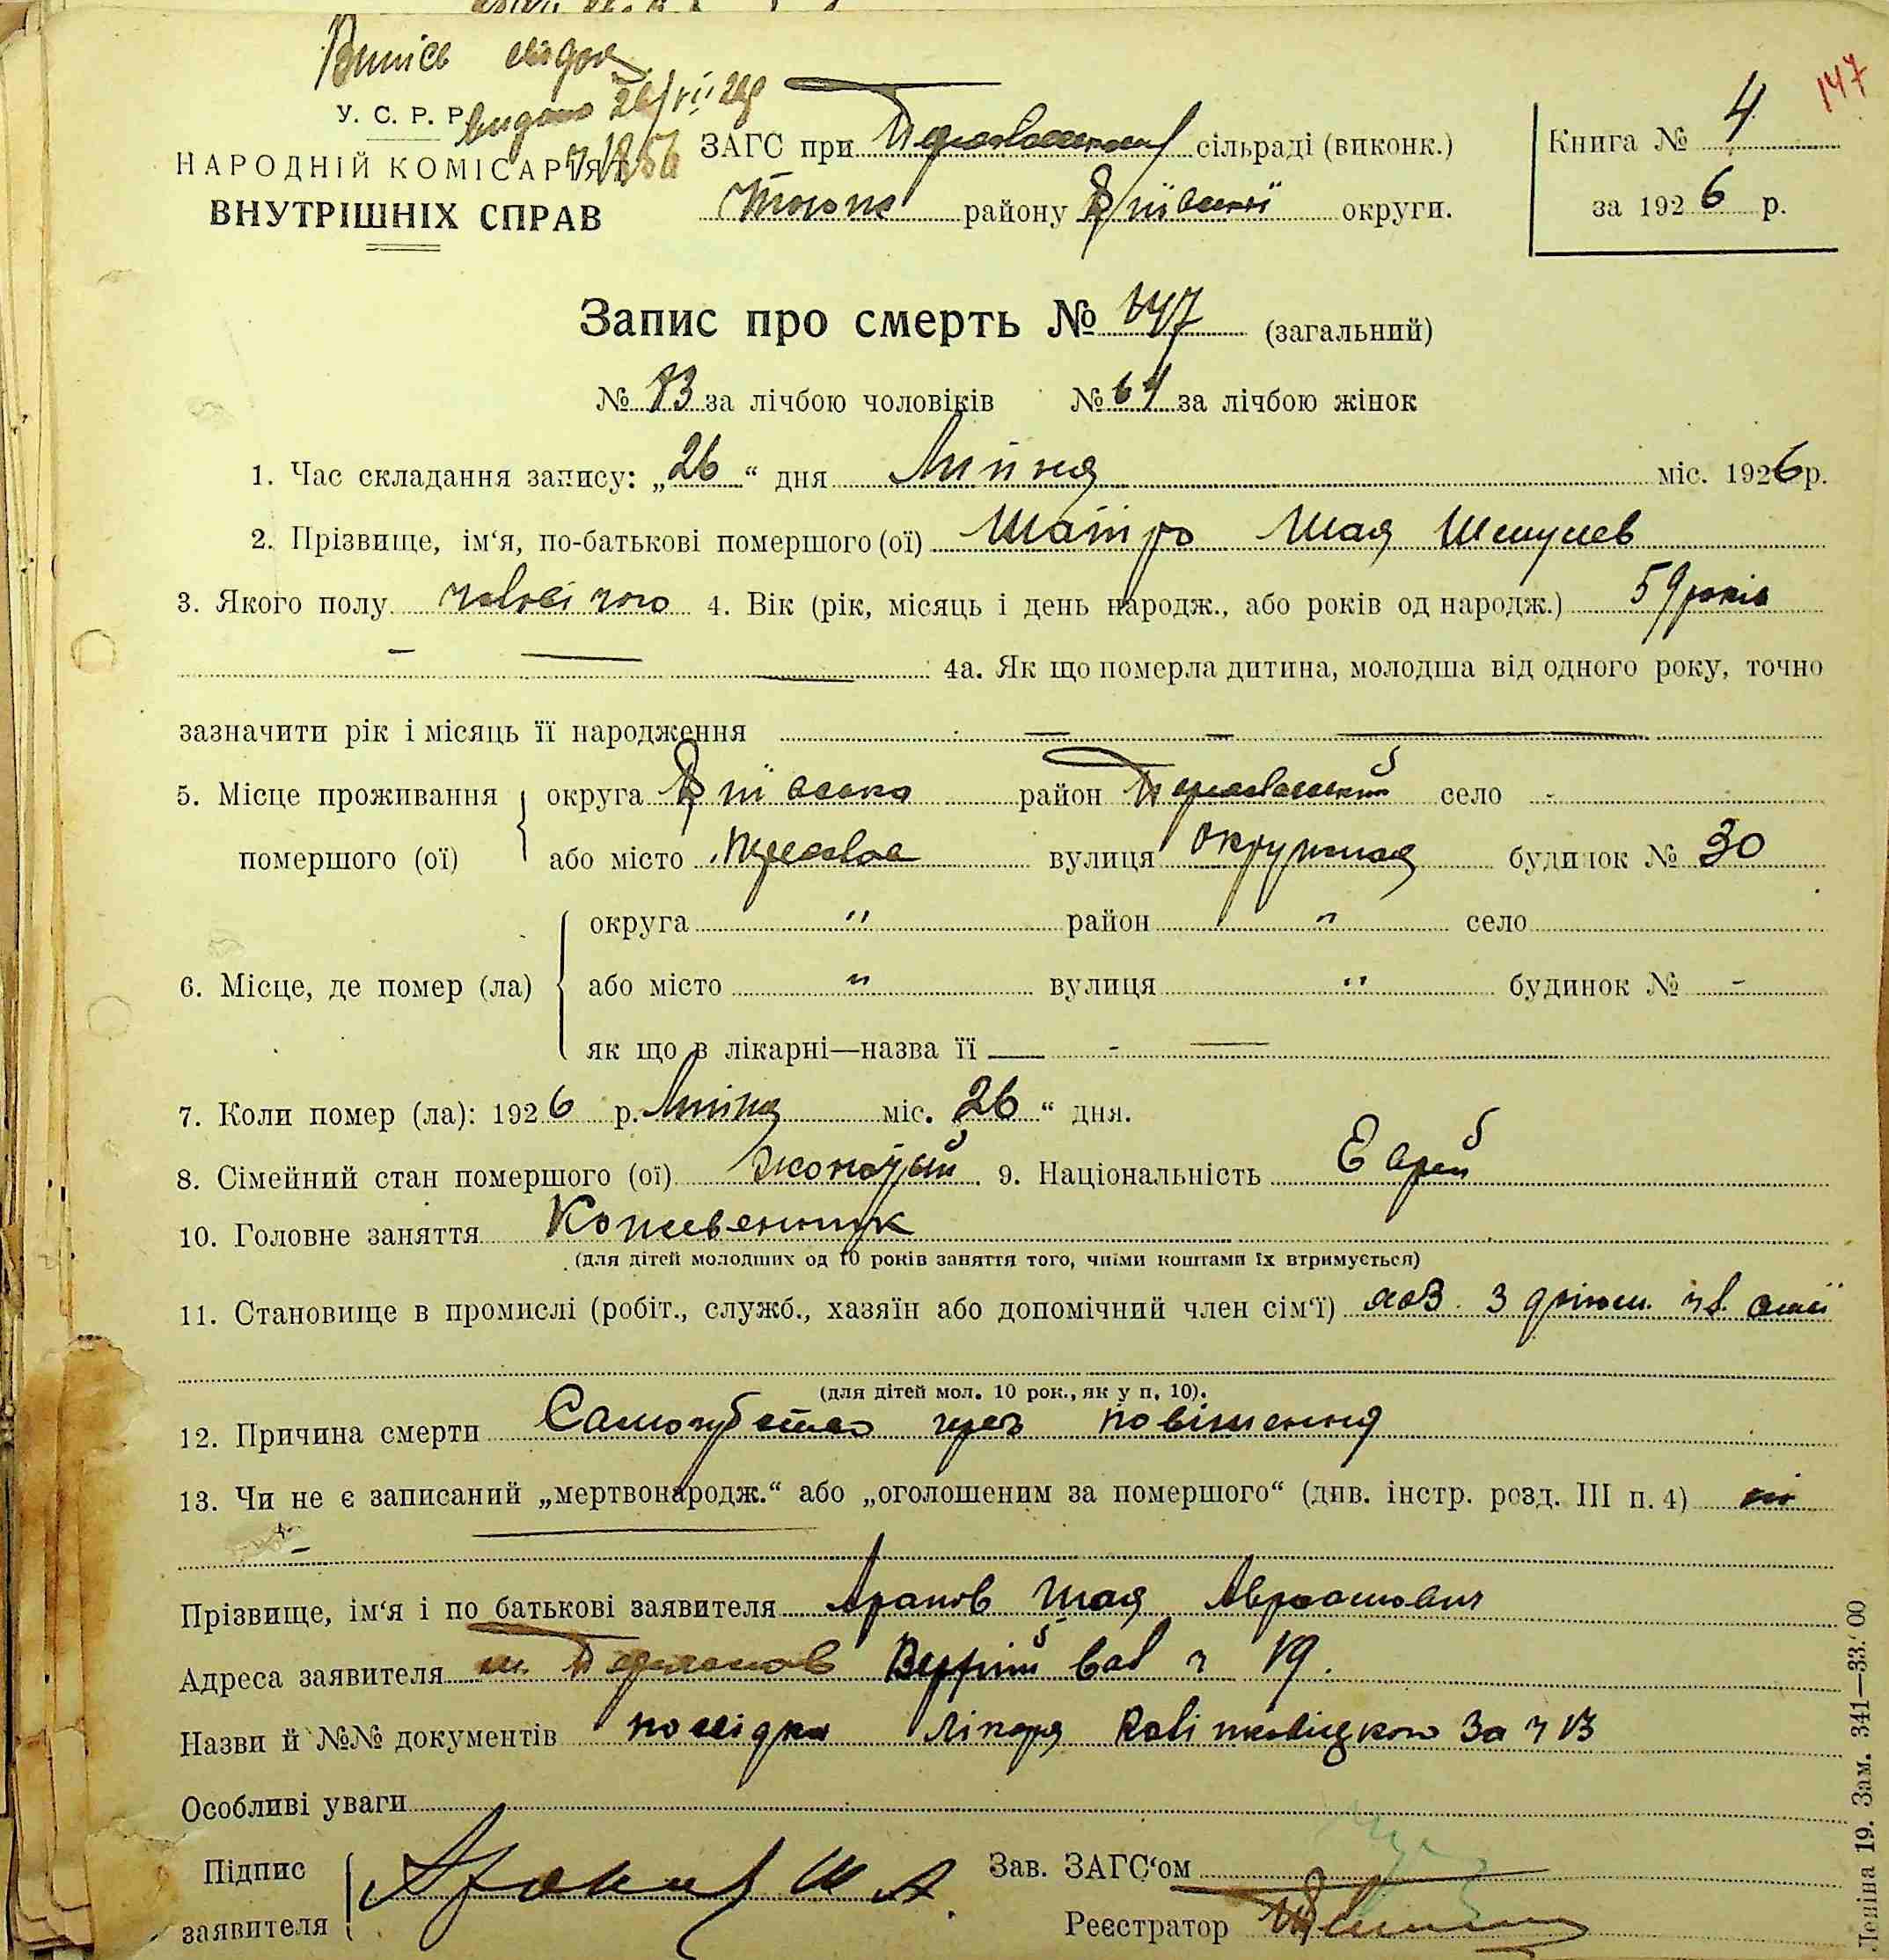 Випись
видано 26/VII 26р
У. С. Р. Р.
НАРОДНІЙ КОМІСАРІЯТ
ВНУТРІШНІХ СПРАВ
ЗАГС при сільраді (виконк.)
району округи.
Книга № 4
за 1926 р.
147
Запис про смерть № 147 (загальний)
№ 83 за лічбою чоловіків № 64 за лічбою жінок
1. Час складання запису: „26“ дня Липня міс. 1926 р.
2. Прізвище, ім‘я, по-батькові помершого (ої) Шапіро Шая Шмулев
3. Якого полу чоловічого 4. Вік (рік, місяць і день народж., або років од народж.) 59 років
4а. Як що померла дитина, молодша від одного року, точно
зазначити рік і місяць її народження —
5. Місце проживання помершого (ої) округа район Переяславський село -
або місто Переяслав вулиця Окружная будинок № 30
6. Місце, де помер (ла) округа " район " село
або місто " вулиця " будинок № -
як що в лікарні—назва її —
7. Коли помер (ла): 1926 р. Липня міс. 26“ дня.
8. Сімейний стан помершого (ої) жонатый 9. Національність Еврей
10. Головне заняття Кожевенник
(для дітей молодших од 10 років заняття того, чиїми коштами їх втримується)
11. Становище в промислі (робіт., служб., хазяїн або допомічний член сім‘ї) хаз. з допом. чл. сімї
(для дітей мол. 10 рок., як у п. 10).
12. Причина смерти Самогубство через повішення
13. Чи не є записаний „мертвонародж.“ або „оголошеним за помершого“ (див. інстр. розд. III п. 4) ні
Прізвище, ім‘я і по батькові заявителя Арапов Шая Авраамович
Адреса заявителя м. Переяслов Верхній вал ч 19.
Назви й №№ документів посвідка Лікаря за ч 13
Особливі уваги
Підпис заявителя Ш А
Зав. ЗАГС‘ом
Реєстратор
Леніна 19. Зам. 341—33.000